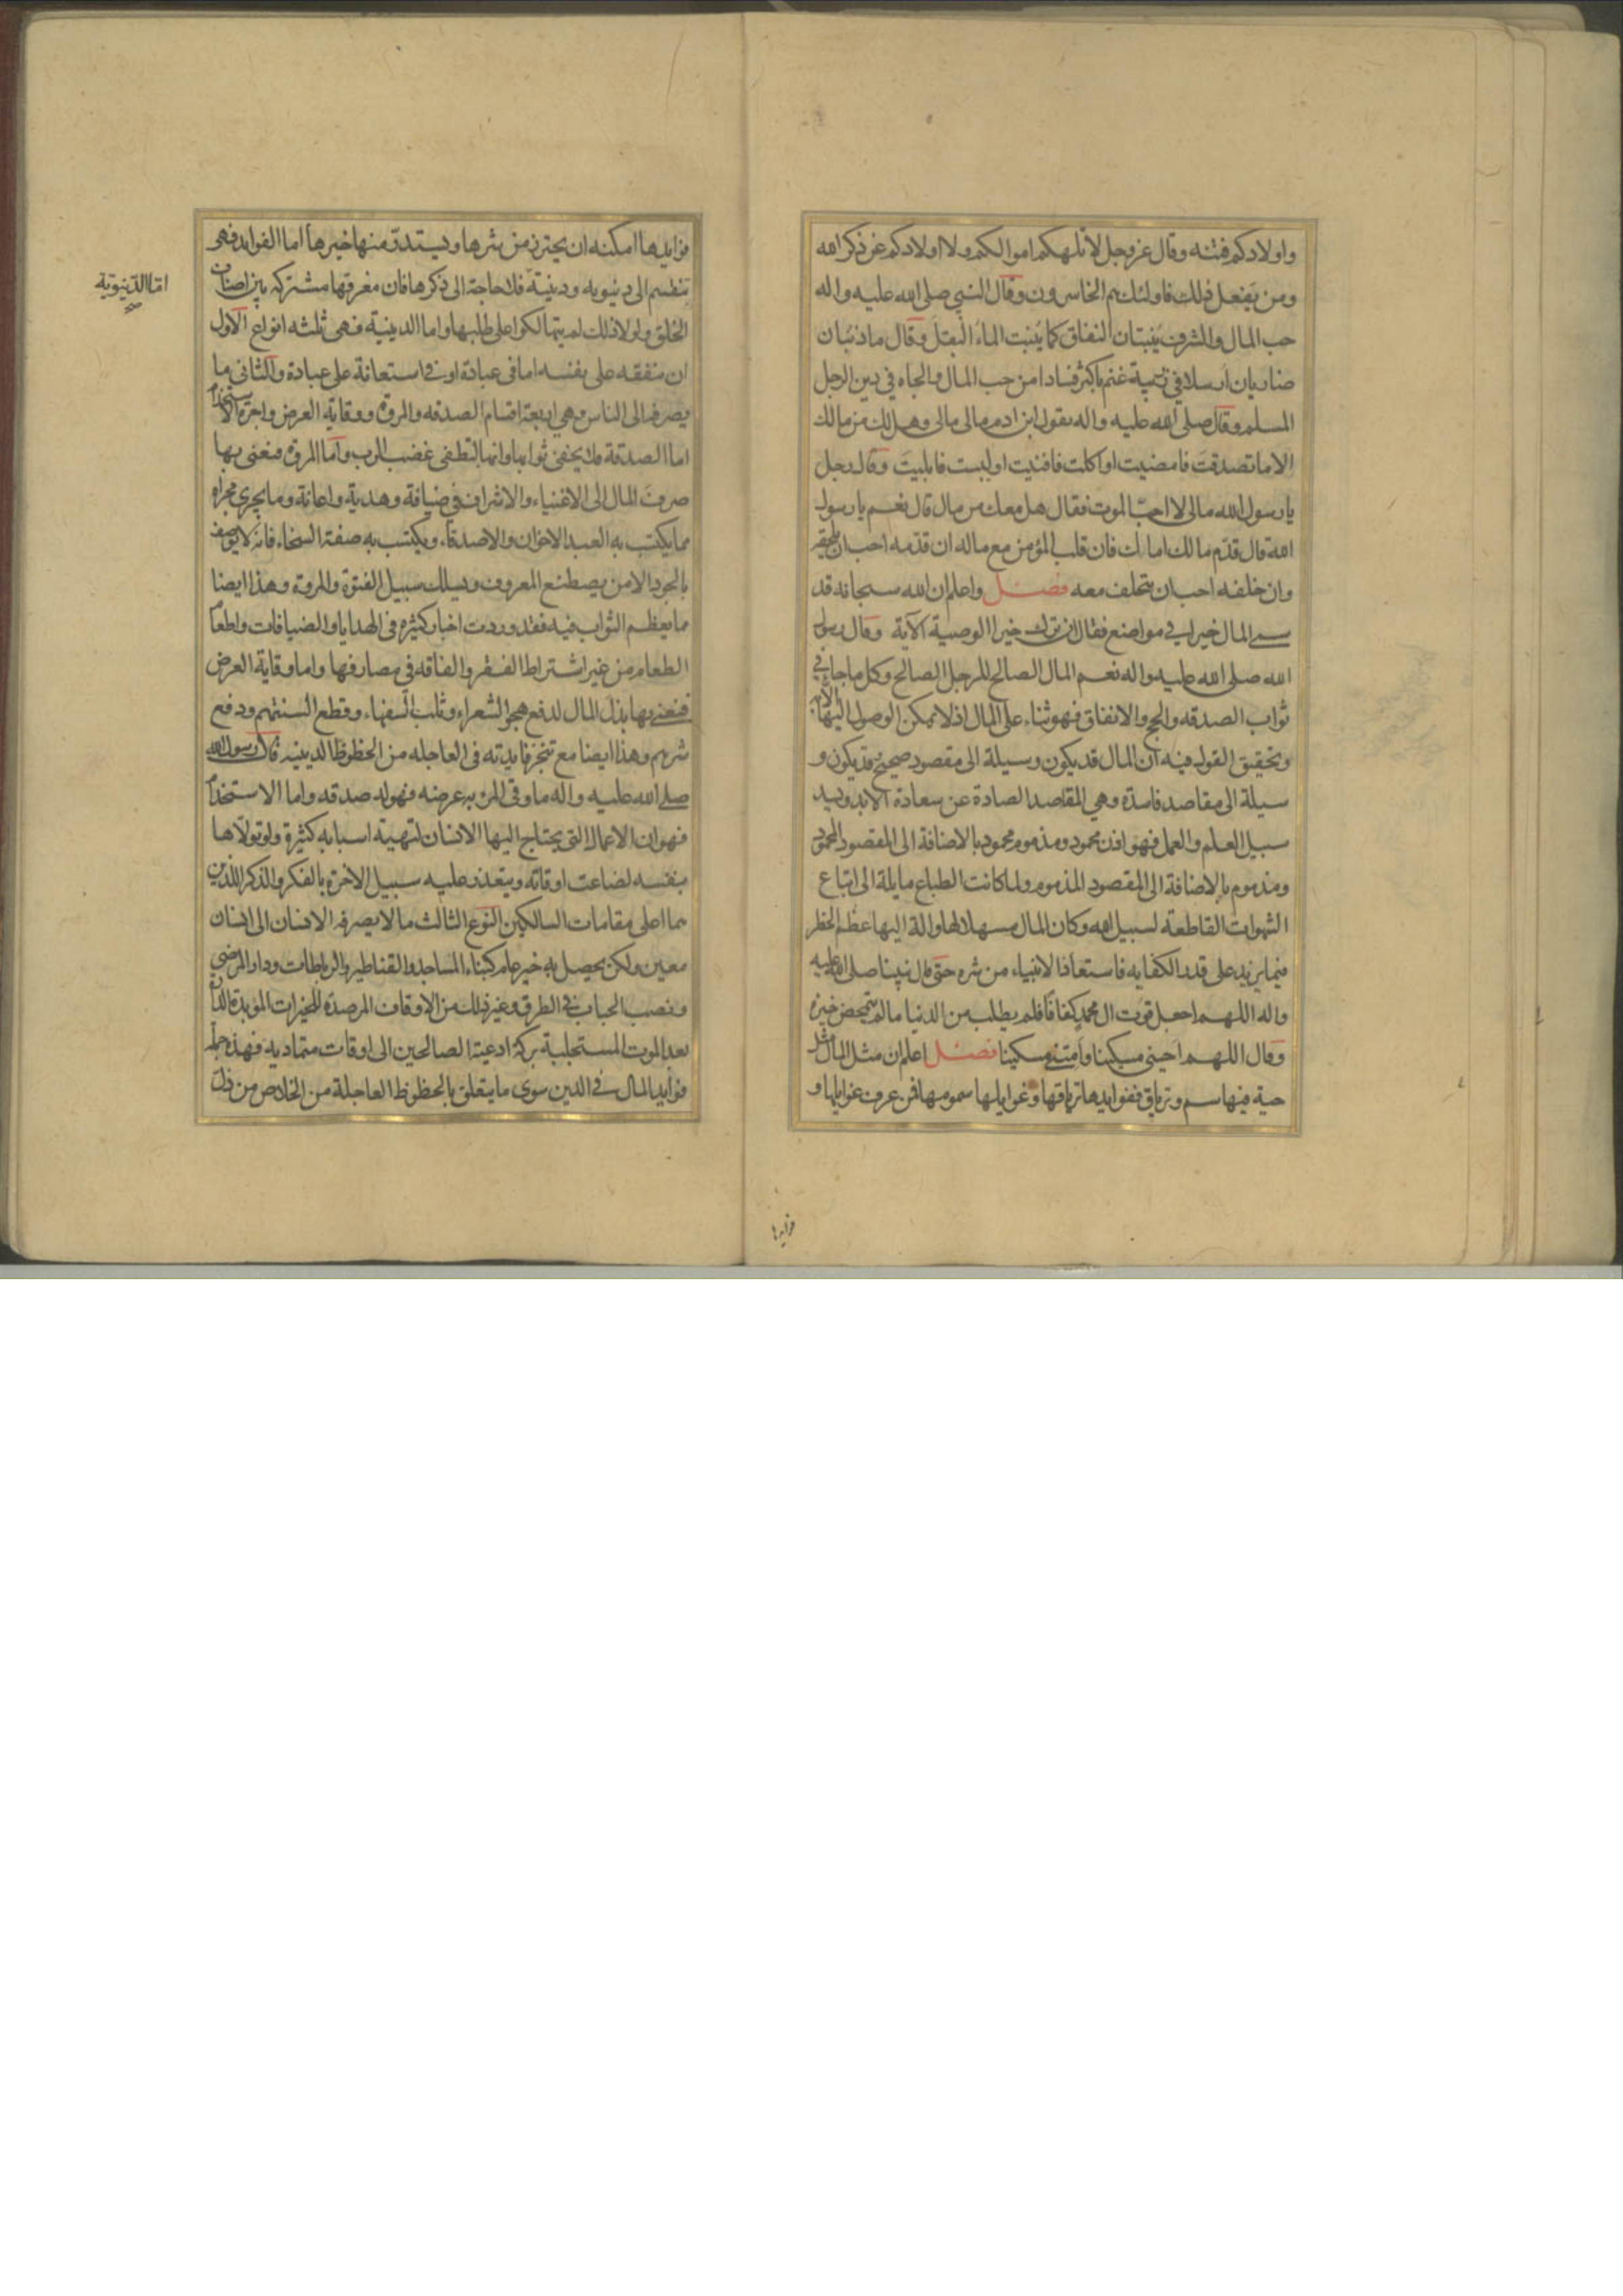 واولادكم فتنه وقال عز وجل لا تلهكم اموالكم ولا اولادكم عن ذكر الله
ومن يفعل ذلك فاولئك هم الخاسرون وقال النبي صلى الله عليه واله
حب المال والشرف ينبتان النفاق كما ينبت الماء البقل وقال ما ذئبان
ضاريان ارسلا في غنم باكثر فسادا من حب المال والجاه في دين الرجل
المسلم وقال صلى الله عليه واله يقول ابن ادم مالى مالى وهل لك من مالك
الا ما تصدقت فامضيت او اكلت فافنيت او لبست فابليت وقال رجل
يا رسول الله مالى لا احب الموت فقال هل معك من مال قال نعم يا رسول
الله قال قدم مالك امامك فان قلب المؤمن مع ماله ان قدمه احب ان يلحقه
وان خلفه احب ان يتخلف معه فصل واعلم ان الله سبحانه قد
سمى المال خيرا في مواضع فقال ان ترك خيرا الوصية الآية وقال رسول
الله صلى الله عليه واله نعم المال الصالح للرجل الصالح وكل ما جاء في
ثواب الصدقه والحج والانفاق فهو ثناء على المال اذ لا يمكن الوصول اليها الا به
وتحقيق القول فيه ان المال قد يكون وسيلة الى مقصود صحيح وقد يكون و
سيلة الى مقاصد فاسدة وهي المقاصد الصادة عن سعادة الابد ويسد
سبيل العلم والعمل فهو اذن محمود ومذموم محمود بالاضافة الى المقصود المحمود
ومذموم بالاضافة الى المقصود المذموم ولما كانت الطباع مايلة الى اتباع
الشهوات القاطعة لسبيل الله وكان المال مسهلا لها والة اليها عظم الخطر
فيما يزيد على قدر الكفايه فاستعاذ الانبياء من شره حتى قال نبينا صلى الله عليه
واله اللهم اجعل قوت ال محمد كفافا فلم يطلب من الدنيا ما لم يتمحض خيره
وقال اللهم احيني مسكينا وامتني مسكينا فصل اعلم ان مثل المال مثل
حية فيها سم وترياق ففوايدها ترياقها وغوايلها سمومها فمن عرف غوايلها و
فوايدها
فوايدها امكنه ان يحترز من شرها ويستدر منها خيرها اما الفوايد فهى
تنقسم الى دنيويه ودينية فلا حاجة الى ذكرها فان معرفتها مشتركه بين اصناف
اما الدنيوية
صح
الخلق ولولا ذلك لم يتهالكوا على طلبها واما الدينية فهى ثلثه انواع الاول
ان ينفقه على نفسه اما فى عبادة او فى استعانة على عبادة والثانى ما
يصرفه الى الناس وهي اربعة اقسام الصدقه والمروة ووقاية العرض واجرة الاستخدام
اما الصدقة فلا يخفى ثوابها وانها لتطفى غضب الرب واما المروة فنعنى بها
صرف المال الى الاغنياء والاشراف فى ضيافة وهدية واعانة وما يجرى مجراه
مما يكتسب به العبد الاخوان والاصدقاء ويكتسب به صفة السخاء فانه لا يوصف
بالجود الا من يصطنع المعروف ويسلك سبيل الفتوة والمروة وهذا ايضا
مما يعظم الثواب فيه فقد وردت اخبار كثيره فى الهدايا والضيافات واطعام
الطعام من غير اشتراط الفقر والفاقه في مصارفها واما وقاية العرض
فنعنى بها بذل المال لدفع هجو الشعراء وثلب السفهاء وقطع السنتهم ودفع
شرهم وهذا ايضا مع تنجز فايدته فى العاجله من الحظوظ الدينيه قال رسول الله
صلى الله عليه واله ما وقى المرء به عرضه فهو له صدقه واما الاستخدام
فهو ان الاعمال التى يحتاج اليها الانسان لتهيئة اسبابه كثيرة ولو تولاها
بنفسه لضاعت اوقاته ويتعذر عليه سبيل الاخرة بالفكر والذكر اللذين
هما اعلى مقامات السالكين النوع الثالث ما لا يصرفه الانسان الى انسان
معين ولكن يحصل به خير عام كبناء المساجد والقناطير والرباطات ودار المرضى
ونصب الحباب فى الطرق وغير ذلك من الاوقاف المرصدة للخيرات المؤبدة الدارة
بعد الموت المستجلبة بركة ادعية الصالحين الى اوقات متماديه فهذه جملة
فوايد المال فى الدين سوى ما يتعلق بالحظوظ العاجلة من الخلاص من ذل